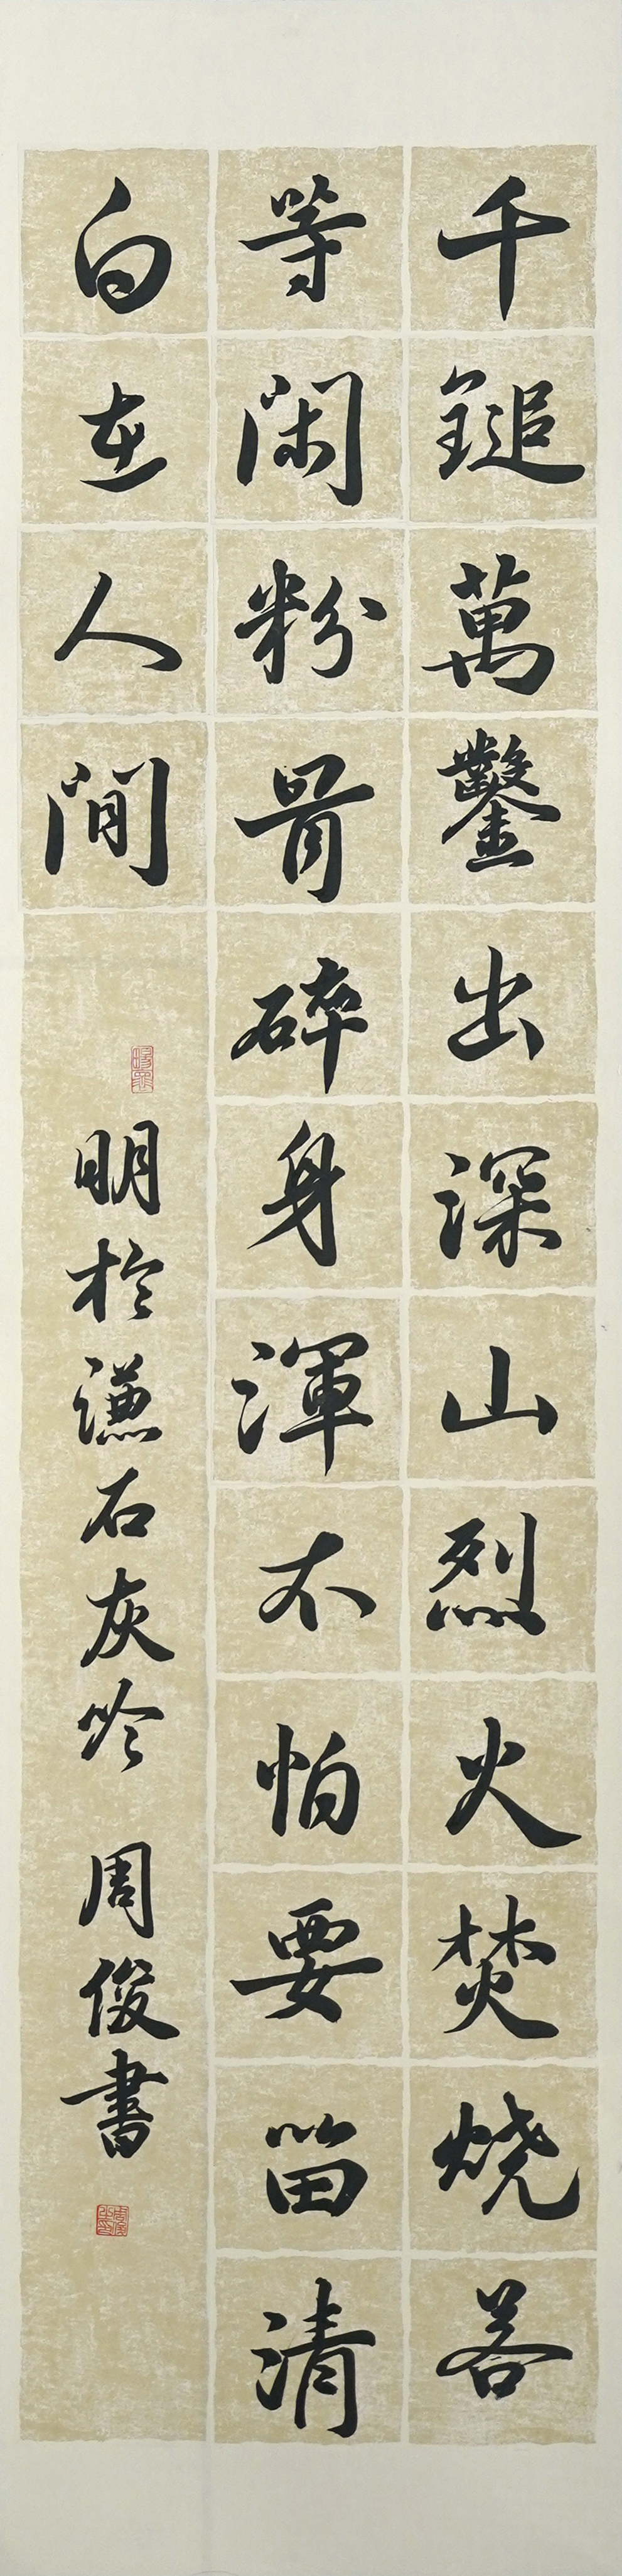 千鎚萬鑿出深山烈火焚烧若
等閑粉骨碎身渾不怕要留清
白在人間 明於謙石灰吟 周俊書